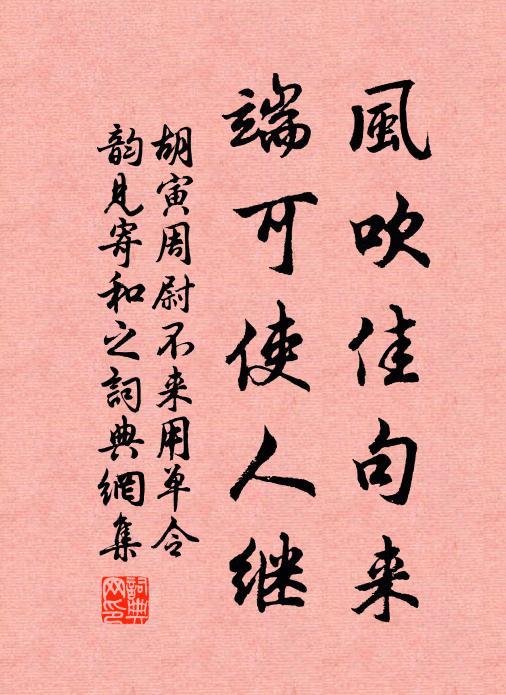 風吹佳句来
端可使人继
胡寅周尉不来用单令
韵見寄和之詞典網集
詞典網印